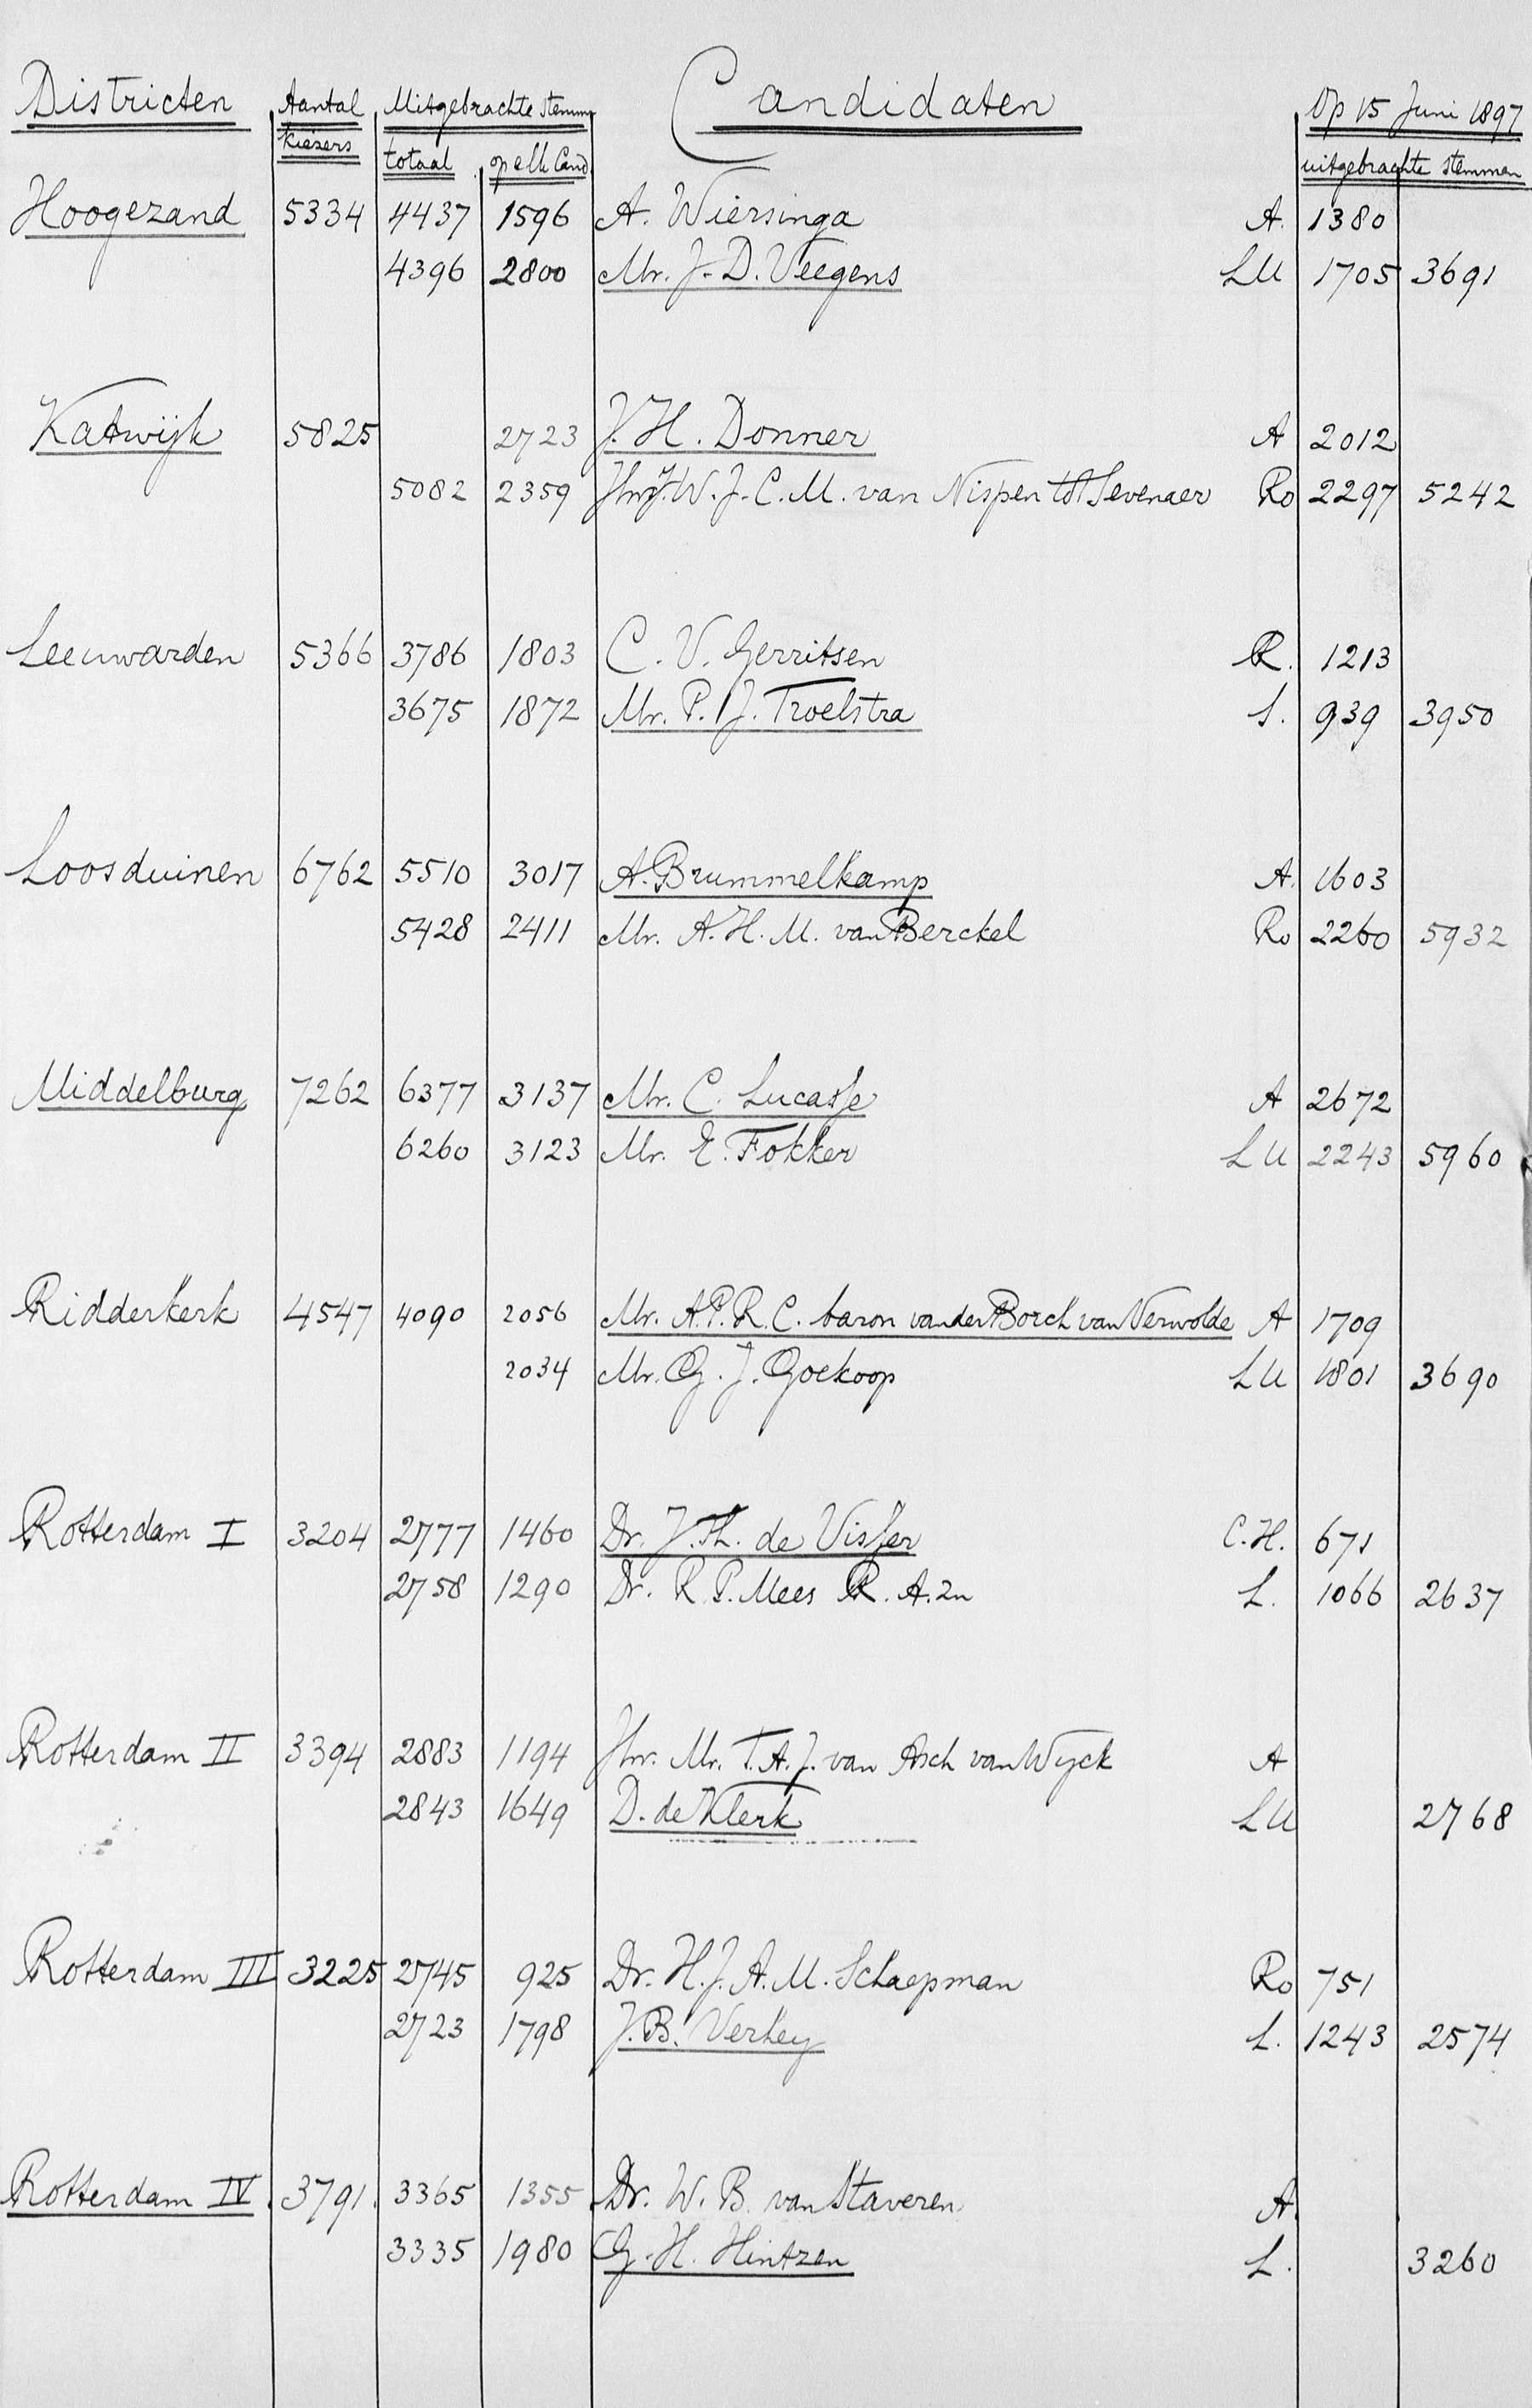 Districten Aantal Uitgebrachte stemm Candidaten Op 15 Juni 1897
Kiezers totaal op elk Cand. uitgebrachte stemmen
Hoogezand 5334 4437 1596 A. Wiersinga A. 1380
4396 2800 Mr. J. D. Veegens LU 1705 3691
Katwijk 5825 2723 J. H. Donner A 2012
5082 2359 Jhr. W. J. C. M. van Nispen tot Sevenaer Ro 2297 5242
Leeuwarden 5366 3786 1803 C. V. Gerritsen R. 1213
3675 1872 Mr. P. J. Troelstra S. 939 3950
Loosduinen 6762 5510 3017 A. Brummelkamp A. 1603
5428 2411 Mr. A. H. M. van Berckel Ro 2260 5932
Middelburg 7262 6377 3137 Mr. C. Lucasse A 2672
6260 3123 Mr. E. Fokker LU 2243 5960
Ridderkerk 4547 4090 2056 Mr. A. P. R. C. baron van der Borch van Verwolde A 1709
2034 Mr. G. J. Goekoop LU 1801 3690
Rotterdam I 3204 2777 1460 Dr. J. Th. de Visser C.H. 671
2758 1290 Dr. R. P. Mees R. A. zn L. 1066 2637
Rotterdam II 3394 2883 1194 Jhr. Mr. T. A. J. van Asch van Wyck A
2843 1649 D. de Klerk LU 2768
Rotterdam III 3225 2745 925 Dr. H. J. A. M. Schaepman Ro 751
2723 1798 J. B. Verhey L. 1243 2574
Rotterdam IV. 3791. 3365 1355 Dr. W. B. van Staveren A.
3335 1980 G. H. Hintzen L. 3260